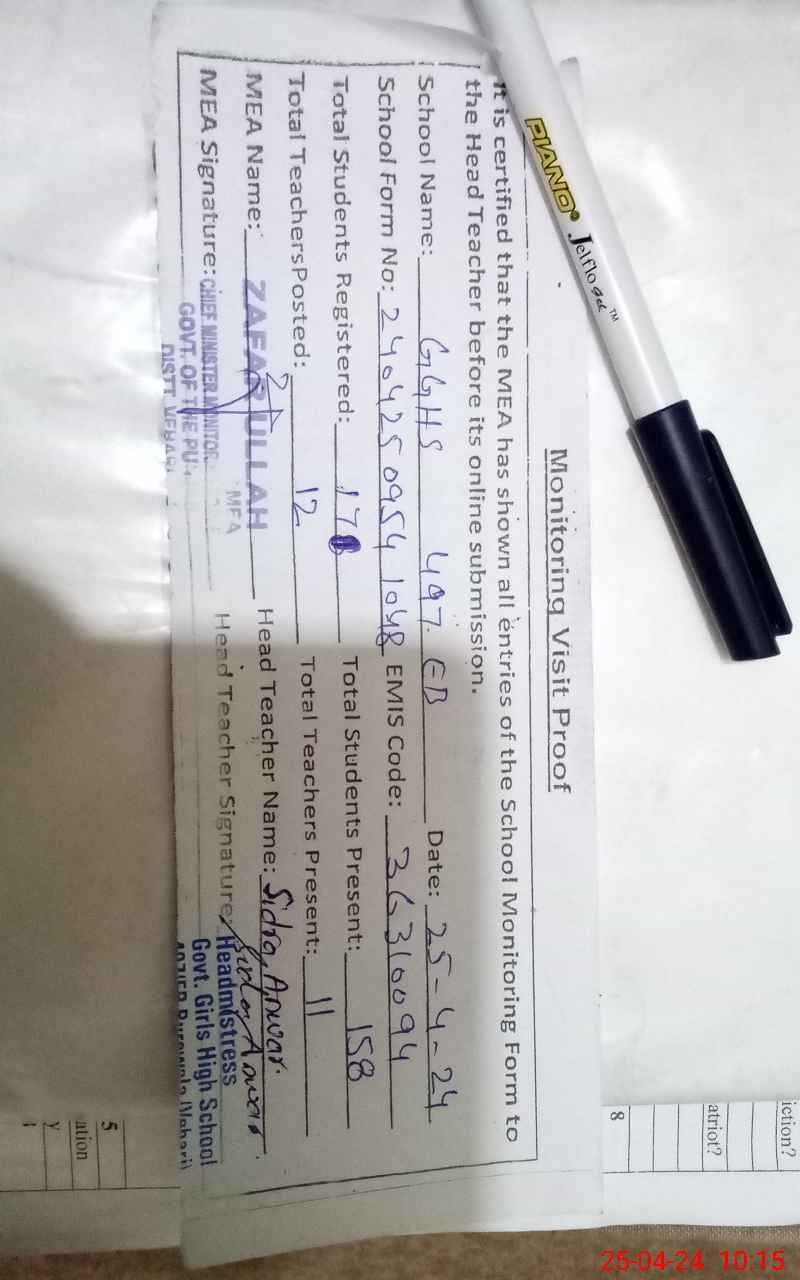 PIANO® Jelflo Gel™
Monitoring Visit Proof
It is certified that the MEA has shown all entries of the School Monitoring Form to
the Head Teacher before its online submission.
School Name: GGHS 497. EB Date: 25-4-24
School Form No: 2404250954 1048 EMIS Code: 36310094
Total Students Registered: 178 Total Students Present: 158
Total TeachersPosted: 12 Total Teachers Present: 11
MEA Name: ZAFAR ULLAH Head Teacher Name: Sidra Anwar
MEA
MEA Signature: CHIEF MINISTER MONITOR Head Teacher Signature: Sidra Anwar
GOVT. OF THE PU
DISTT. VEHARI
Headmistress
Govt. Girls High School
iction?
atriot?
8
5
ation
y
25-04-24 10:15